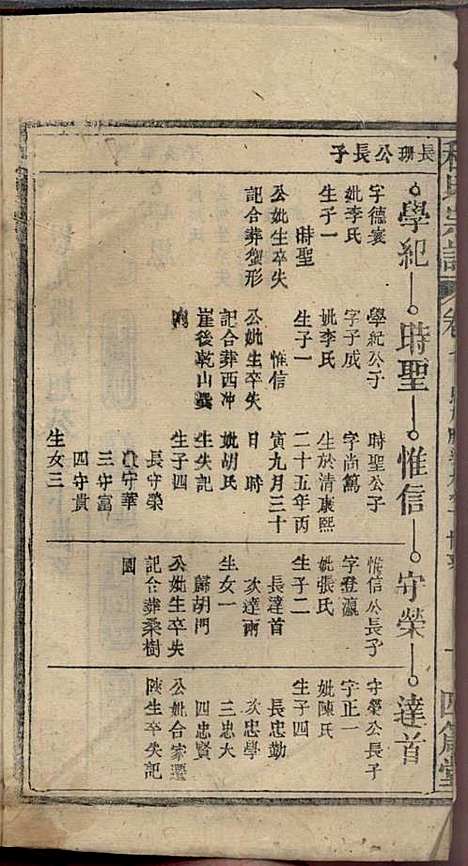 長珊公長子
學紀 時聖 惟信 守榮 達首
字德寰
妣李氏
生子一
時聖
公妣生卒失
記合葬蠻形
學紀公子
字子成
妣李氏
生子一
惟信
公妣生卒失
記合葬西冲
崖後乾山巽
時聖公子
字尚篤
生於清康熙
二十五年丙
寅九月三十
日時
妣胡氏
生失記
生子四
長守榮
次守華
三守富
四守貴
生女三
惟信公長子
字登瀛
妣張氏
生子二
長達首
次達兩
生女一
歸胡門
公妣生卒失
記合葬桑樹
園
守榮公長子
字正一
妣陳氏
生子四
長忠勤
次忠學
三忠大
四忠賢
公妣合家遷
陝生卒失記
氏宗譜 卷